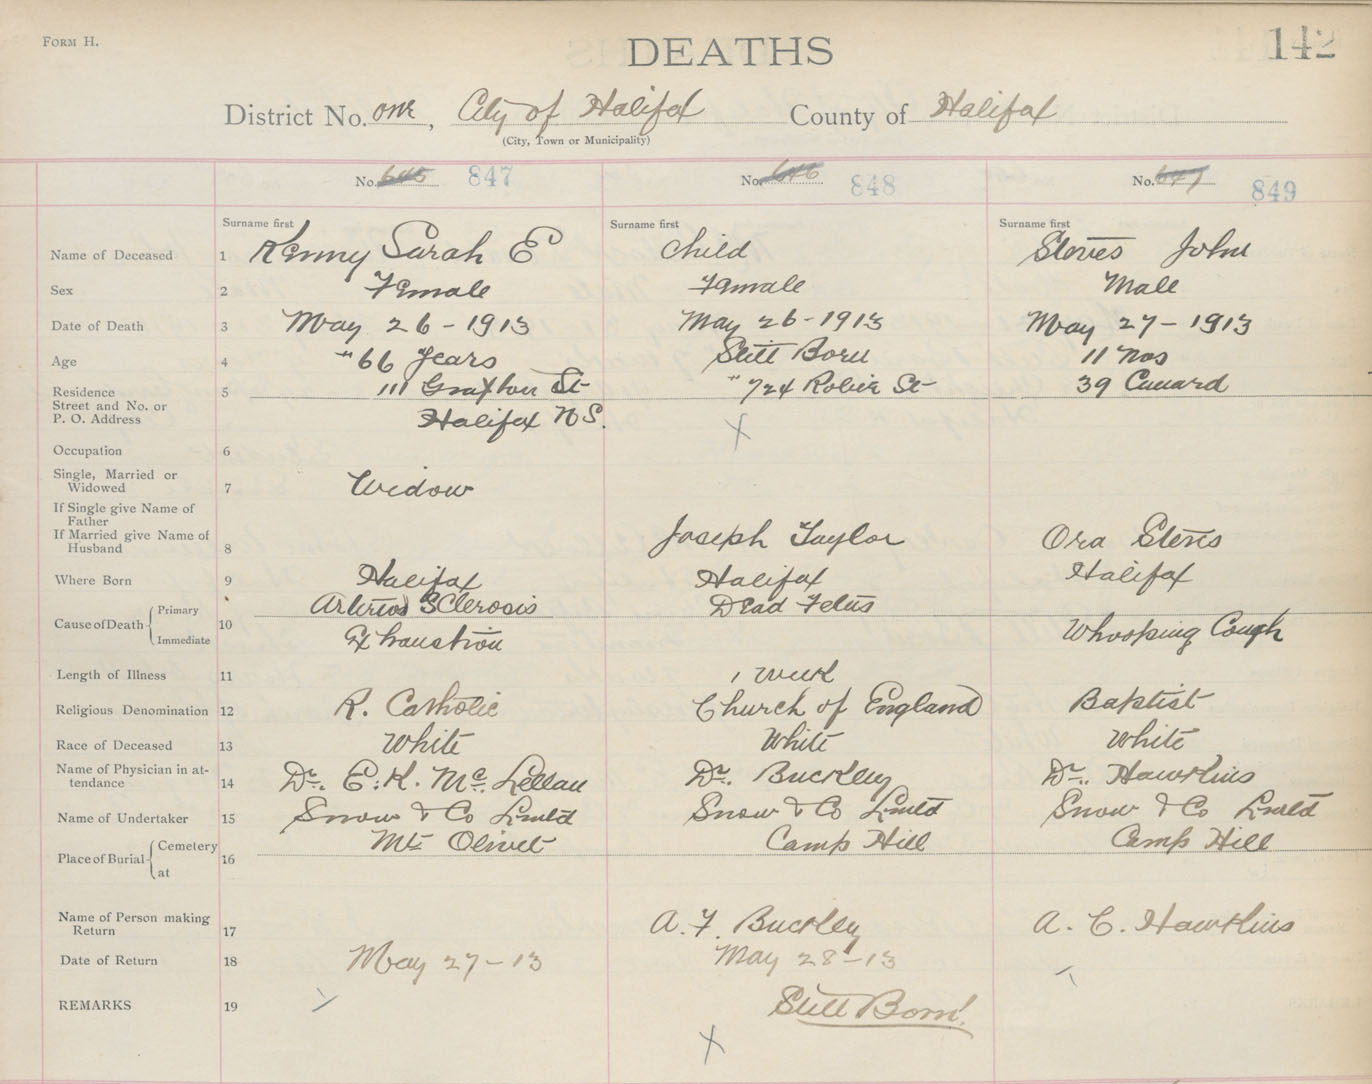 FORM H.
DEATHS
142
District No. one, City of Halifax County of Halifax
(City, Town or Municipality)
No. 645 847 No. 646 848 No. 647 849
Surname first Surname first Surname first
Name of Deceased 1 Kenny Sarah E Child Steves John
Sex 2 Female Female Male
Date of Death 3 May 26-1913 May 26-1913 May 27-1913
Age 4 " 66 years Still Born 11 mos
Residence 5 111 Grafton St " 724 Robie St 39 Cunard
Street and No. or
P. O. Address Halifax N S. X
Occupation 6
Single, Married or
Widowed 7 Widow
If Single give Name of
Father
If Married give Name of
Husband 8 Joseph Taylor Ora Steves
Where Born 9 Halifax Halifax Halifax
Cause of Death Primary 10 Arterio Sclerosis Dead Fetus
Immediate Exhaustion Whooping Cough
Length of Illness 11 1 week
Religious Denomination 12 R. Catholic Church of England Baptist
Race of Deceased 13 White White White
Name of Physician in at-
tendance 14 Dr. E. K. McLellan Dr. Buckley Dr. Hawkins
Name of Undertaker 15 Snow & Co Lmtd Snow & Co Lmtd Snow & Co Lmtd
Place of Burial Cemetery 16 Mt Olivet Camp Hill Camp Hill
at
Name of Person making
Return 17 A. F. Buckley A. C. Hawkins
Date of Return 18 May 27-13 May 28-13
REMARKS 19 Still Born!
X